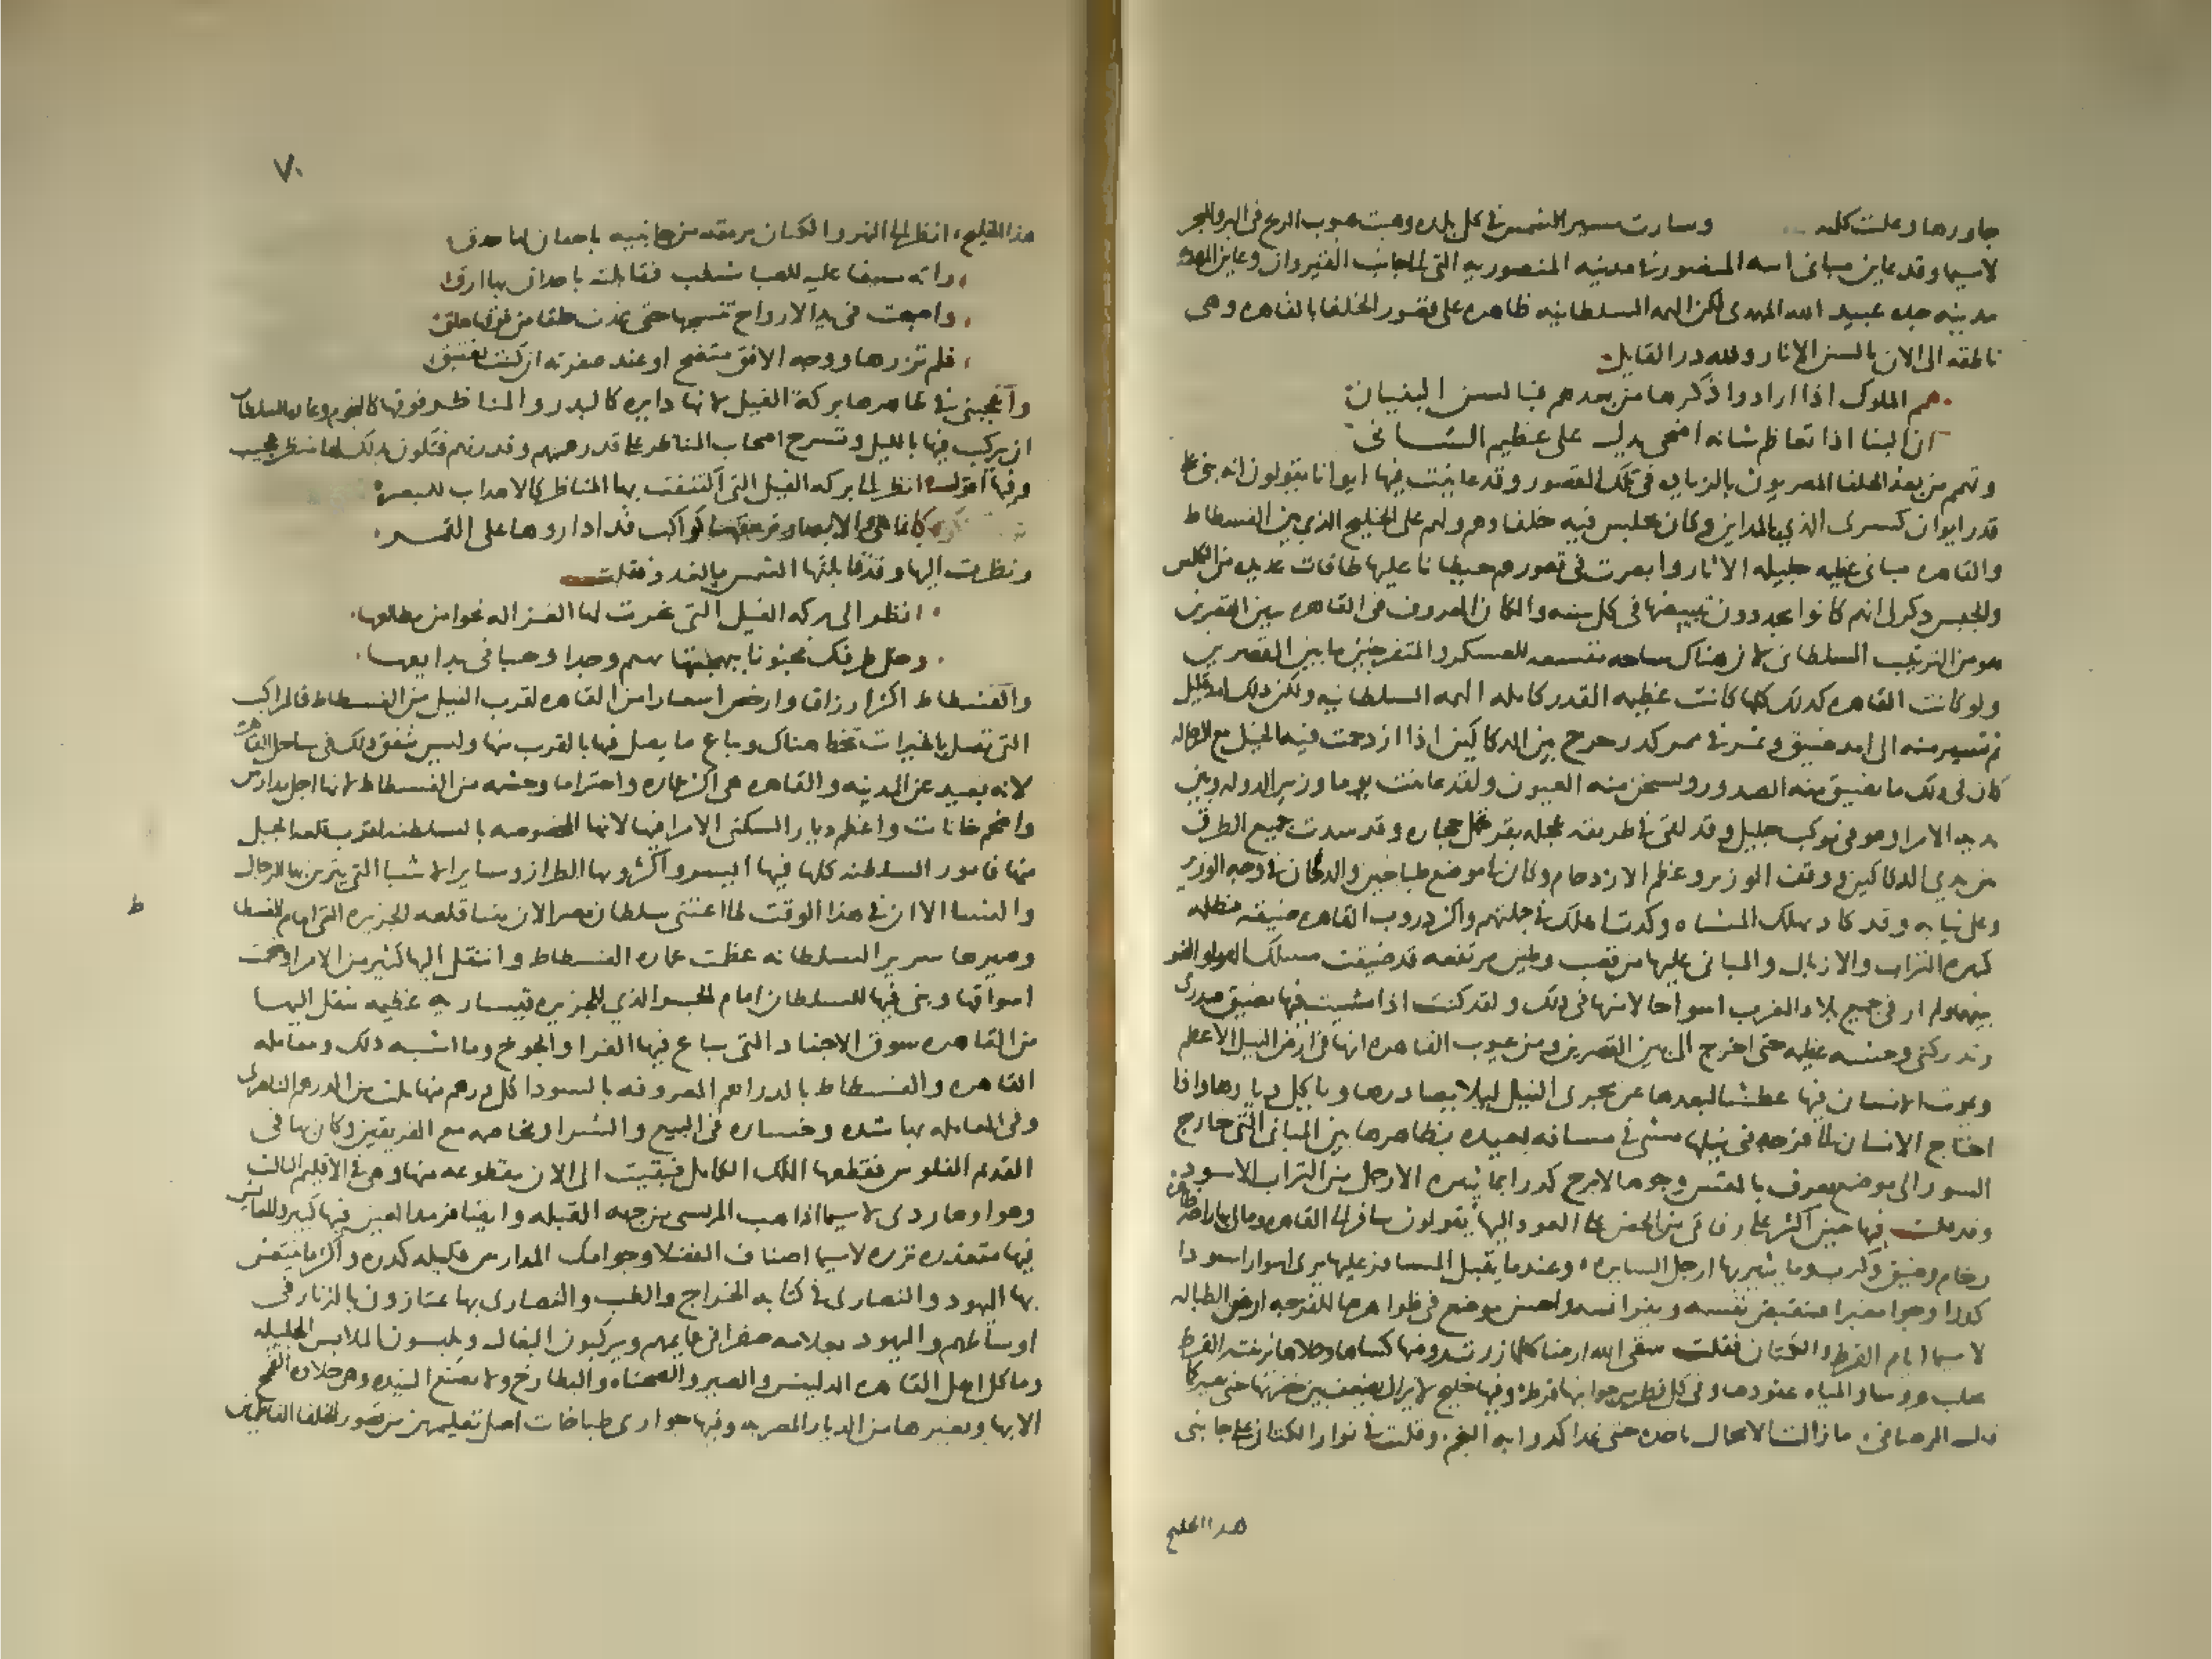 جاورها وعلت كلمه وسارت مسير الشمس في كل بلده وهبت هبوب الريح في البر والبحر
لاسيما وقد عاين مباني ابيه المنصور في مدينه المنصوريه التي الى جانب القيروان وعاين المهديه
مدينه جده عبيد الله المهدي لكن الهمه السلطانيه ظاهره على قصور الخلفا بالقاهره وهي
ناطقه الى الان بالسن الاثار ولله در القايل
هم الملوك اذا ارادوا ذكرها من بعدهم فبالسن البنيان
ان البنا اذا تعاظم شانه اضحى يدل على عظيم الشاني
وتهمم من بعده الخلفا المصريون بالزياده في تلك القصور وقد عاينت فيها ايوانا يقولون انه بني على
قدر ايوان كسرى الذي بالمداين وكان يجلس فيه خلفاوهم ولهم على الخليج الذي بين الفسطاط
والقاهره مباني عظيمه جليله الاثار وابصرت في قصورهم حيطانا عليها طاقات عديده من الكلس
والجبس ذكر لي انهم كانوا يجددون تبييضها في كل سنه والمكان المعروف في القاهره بين القصرين
هو من الترتيب السلطاني لان هناك ساحه متسعه للعسكر والمتفرجين ما بين القصرين
ولو كانت القاهره كذلك كلها كانت عظيمه القدر كامله الهمه السلطانيه ولكن ذلك امد قليل
ثم تسير منه الى امد ضيق وتمر في ممر كدر حرج بين الدكاكين اذا ازدحمت فيه الخيل مع الرجاله
كان في ذلك ما تضيق منه الصدور وتسخن منه العيون ولقد عاينت يوما وزير الدوله وبين
يديه الامرا وهو في موكب جليل وقد لقي في طريقه عجله بقر تحمل حجاره وقد سدت جميع الطرق
بين يدي الدكاكين ووقف الوزير وعظم الازدحام وكان في موضع طباخين والدخان في وجه الوزير
وعلى ثيابه وقد كاد يهلك المشاه وكدت اهلك في جملتهم واكثر دروب القاهره ضيقه مظلمه
كثيره التراب والازبال والمباني عليها من قصب وطين مرتفعه قد ضيقت مسلك الهوا والضو
بينهما ولم ار في جميع بلاد المغرب اسوا حالا منها في ذلك ولقد كنت اذا مشيت فيها يضيق صدري
وتدركني وحشه عظيمه حتى اخرج الى بين القصرين ومن عيوب القاهره انها في ارض النيل الاعظم
ويموت الانسان فيها عطشا لبعدها عن مجرى النيل ليلا يصادرها وياكل ديارها واذا
احتاج الانسان الى فرجه في نيلها مشى في مسافه بعيده بظاهرها بين المباني التي خارج
السور الى موضع يعرف بالمقس وجوها لا يبرح كدرا بما تثيره الارجل من التراب الاسود
وقد قلت فيها حين اكثر على رفاقي من الحض على العود اليها يقولون سافر الى القاهره ومالي بها راحه ظاهره
زحام وضيق وكرب وما تثير بها ارجل السايره وعندما يقبل المسافر عليها يرى سورا اسودا
كدرا وجوا مغبرا فتنقبض نفسه ويفر انسه واحسن موضع في ظواهرها للفرجه ارض الطباله
لا سيما ايام القرط والكتان فقلت سقى الله ارضا كلما زرت
حلت عروسا والمياه عقودها وفي كل قطر من جوانبها قرط وفيها خليج لا يزال يضعف بين خضرتها حتى يصير كما
قال الرصافي ما زالت الانحال تاخذه حتى غدا كذوابه النجم وقلت في نوار الكتان على جانبي
هذا الخليج
٧٠
هذا الخليج انظر الى النهر والكتان يرمقه من جانبيه باجفان لها حدق
راته سيفا عليه للصبا شطب فقابلته باحداق بها ارق
واصبحت في يد الارواح تنسجها حتى غدت حلقا من فوقها حلق
فلم تزرها ووجه الافق متضح او عند صفرته ان كنت تغتبق
واعجبني في ظاهرها بركة الفيل لانها دايره كالبدر والمناظر فوقها كالنجوم وعاده السلطان
ان يركب فيها بالليل وتسرج اصحاب المناظر على قدر هممهم وقدرتهم فتكون بذلك لها منظر عجيب
وفيها اقول انظر الى بركه الفيل التي اكتنفت بها المناظر كالاهداب للبصر
كانما هي والابصار ترمقها كواكب قد اداروها على القمر
ونظرت اليها وقد قابلتها الشمس بالغدو فقلت
انظر الى بركه الفيل التي نحرت لها الغزاله نحرا من مطالعها
وخل طرفك مجنونا ببهجتها يهيم وجدا وحبا في بدايعها
والفسطاط اكثر ارزاقا وارخص اسعارا من القاهره لقرب النيل من الفسطاط فالمراكب
التي تصل بالخيرات تحط هناك ويباع ما يصل فيها بالقرب منها وليس يتفق ذلك في ساحل القاهره
لانه بعيد عن المدينه والقاهره هي اكثر عماره واحتراما وحشمه من الفسطاط لانها اجل مدارس
واضخم خانات واعظم ديار السكنى الامرا فيها لانها المخصوصه بالسلطنه لقرب قلعه الجبل
منها فامور السلطنه كلها فيها ايسر واكثر وبها الطراز وساير الاشيا التي تتزين بها الرجال
والنسا الا ان في هذا الوقت لما اعتنى سلطان مصر الان ببنا قلعه الجزيره التي امام الفسطاط
وصيرها سرير السلطانه عظمت عماره الفسطاط وانتقل اليها كثير من الامرا وضخمت
اسواقها وبنى فيها للسلطان امام الجسر الذي للجزيره قيساريه عظيمه نقل اليها
من القاهره سوق الاجناد التي يباع فيها الفرا والجوخ وما اشبه ذلك ومعامله
القاهره والفسطاط بالدراهم المعروفه بالسودا كل درهم منها ثلث من الدرهم الناصري
وفي المعامله بها شده وخساره في البيع والشرا ومخاصمه مع الفريقين وكان بها في
القديم الفلوس فقطعها الملك الكامل فبقيت الى الان مقطوعه منها وهي في الاقليم الثالث
وهواوها ردي لاسيما اذا هب المريسي من جهه القبله وايضا فرمد العين فيها كثير والمعايش
فيها متعذره نزره لاسيما اصناف الفضلا وجوامك المدارس قليله كدره واكثر ما يتعيش
بها اليهود والنصارى في كتابه الخراج والطب والنصارى بها يمتازون بالزنار في
اوساطهم واليهود بعلامه صفرا في عمايمهم ويركبون البغال ويلبسون الملابس الجليله
وماكل اهل القاهره الدلينس والصير والصحناه والبطارخ ولا تصنع النيده وهي حلاوه القمح
الا بها وبغيرها من الديار المصريه وفيها جواري طباخات اصل تعليمهن من قصور الخلفا الفاطميين
ط